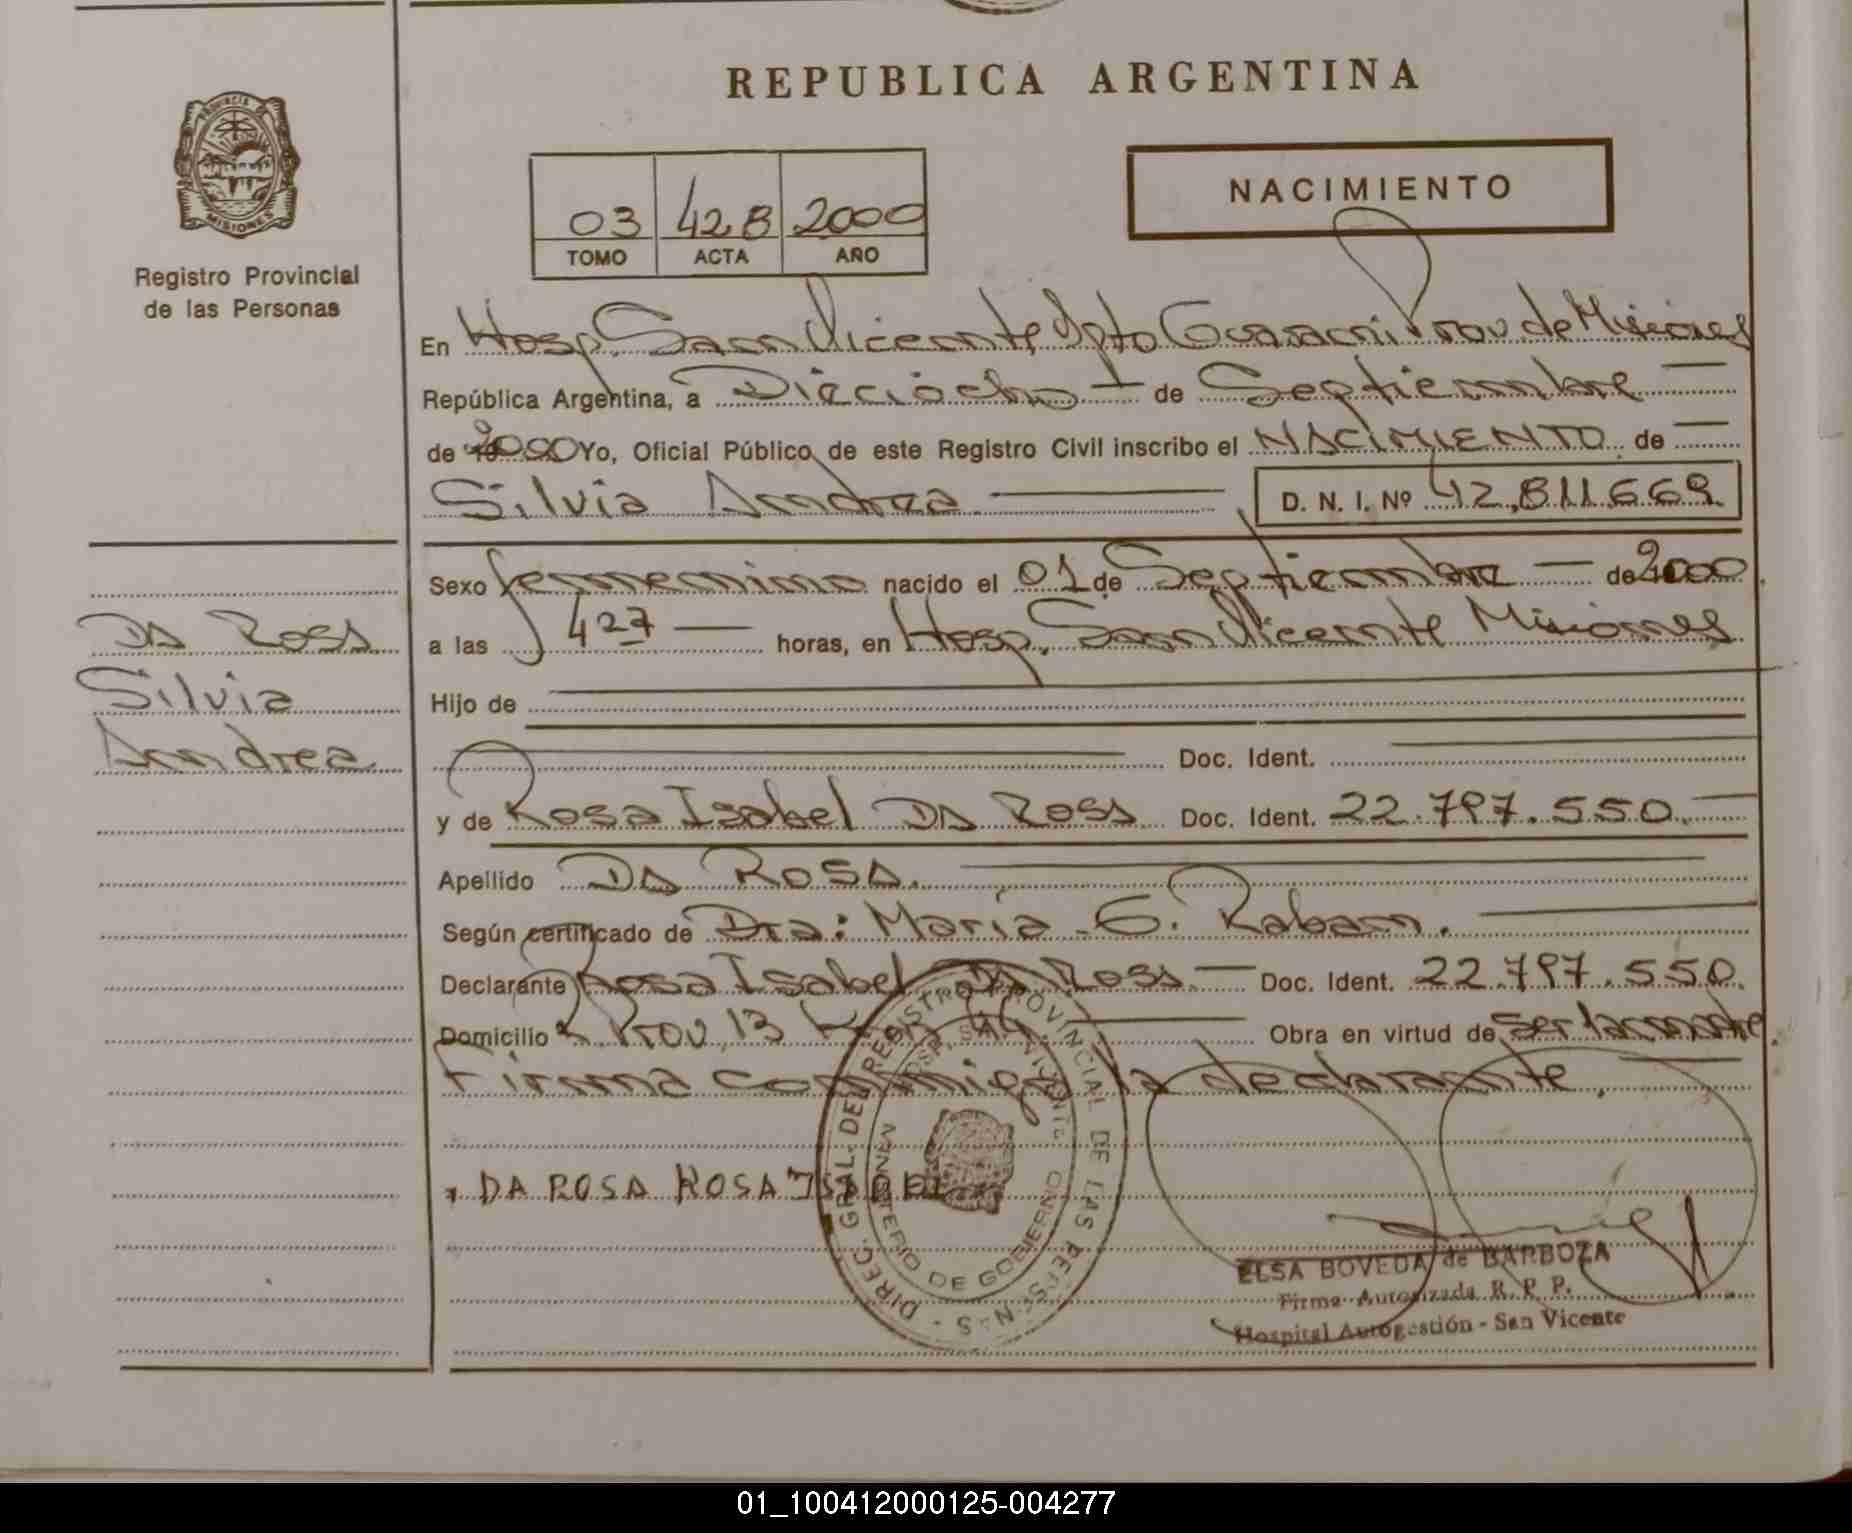 REPUBLICA ARGENTINA
PROVINCIA DE
MISIONES
Registro Provincial
de las Personas
NACIMIENTO
03 428 2000
TOMO ACTA AÑO
En Hosp. San Vicente, Dpto Guarani Prov. de Misiones
República Argentina, a Dieciocho — de Septiembre —
de 2000 Yo, Oficial Público de este Registro Civil inscribo el NACIMIENTO de —
Silvia Andrea — D. N. I. Nº 42.811.669
Sexo femenino nacido el 01 de Septiembre — de 2000
a las 4 27 — horas, en Hosp. San Vicente Misiones
Hijo de
Doc. Ident.
y de Rosa Isabel DA ROSA Doc. Ident. 22.797.550.—
Apellido DA ROSA.
Según certificado de Dra: María E. Raban.
Declarante Rosa Isabel DA ROSA — Doc. Ident. 22.797.550.
Domicilio R. Prov. 13 Km Obra en virtud de ser la madre
Firma conmigo la declarante.
DA ROSA
Silvia
Andrea
DA ROSA ROSA ISABEL
DIREC. GRAL. DEL REGISTRO PROVINCIAL DE LAS PERSONAS
HOSP. SAN VICENTE
MINISTERIO DE GOBIERNO
ELSA BOVEDA de BARBOZA
Firma Autorizada R. P. P.
Hospital Autogestión - San Vicente
01_100412000125-004277